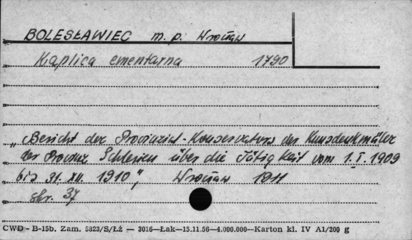 BOLESŁAWIEC m. p. Wrocław
Kaplica cmentarna 1790
"Bericht der Provinzial-Konservators der Kunsdenkmäler
der Provinz Schlesien über die Tätigkeit vom 1.I.1909
bis 31.XII.1910", Wrocław 1911
str. 37
CWD - B-15b. Zam. 5823/S/Łż — 3016—Łak—15.11.56—4.000.000—Karton kl. IV A1/200 g